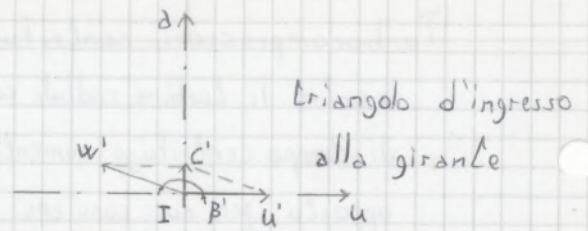 a
triangolo d'ingresso
w' c' alla girante
I β' u' u